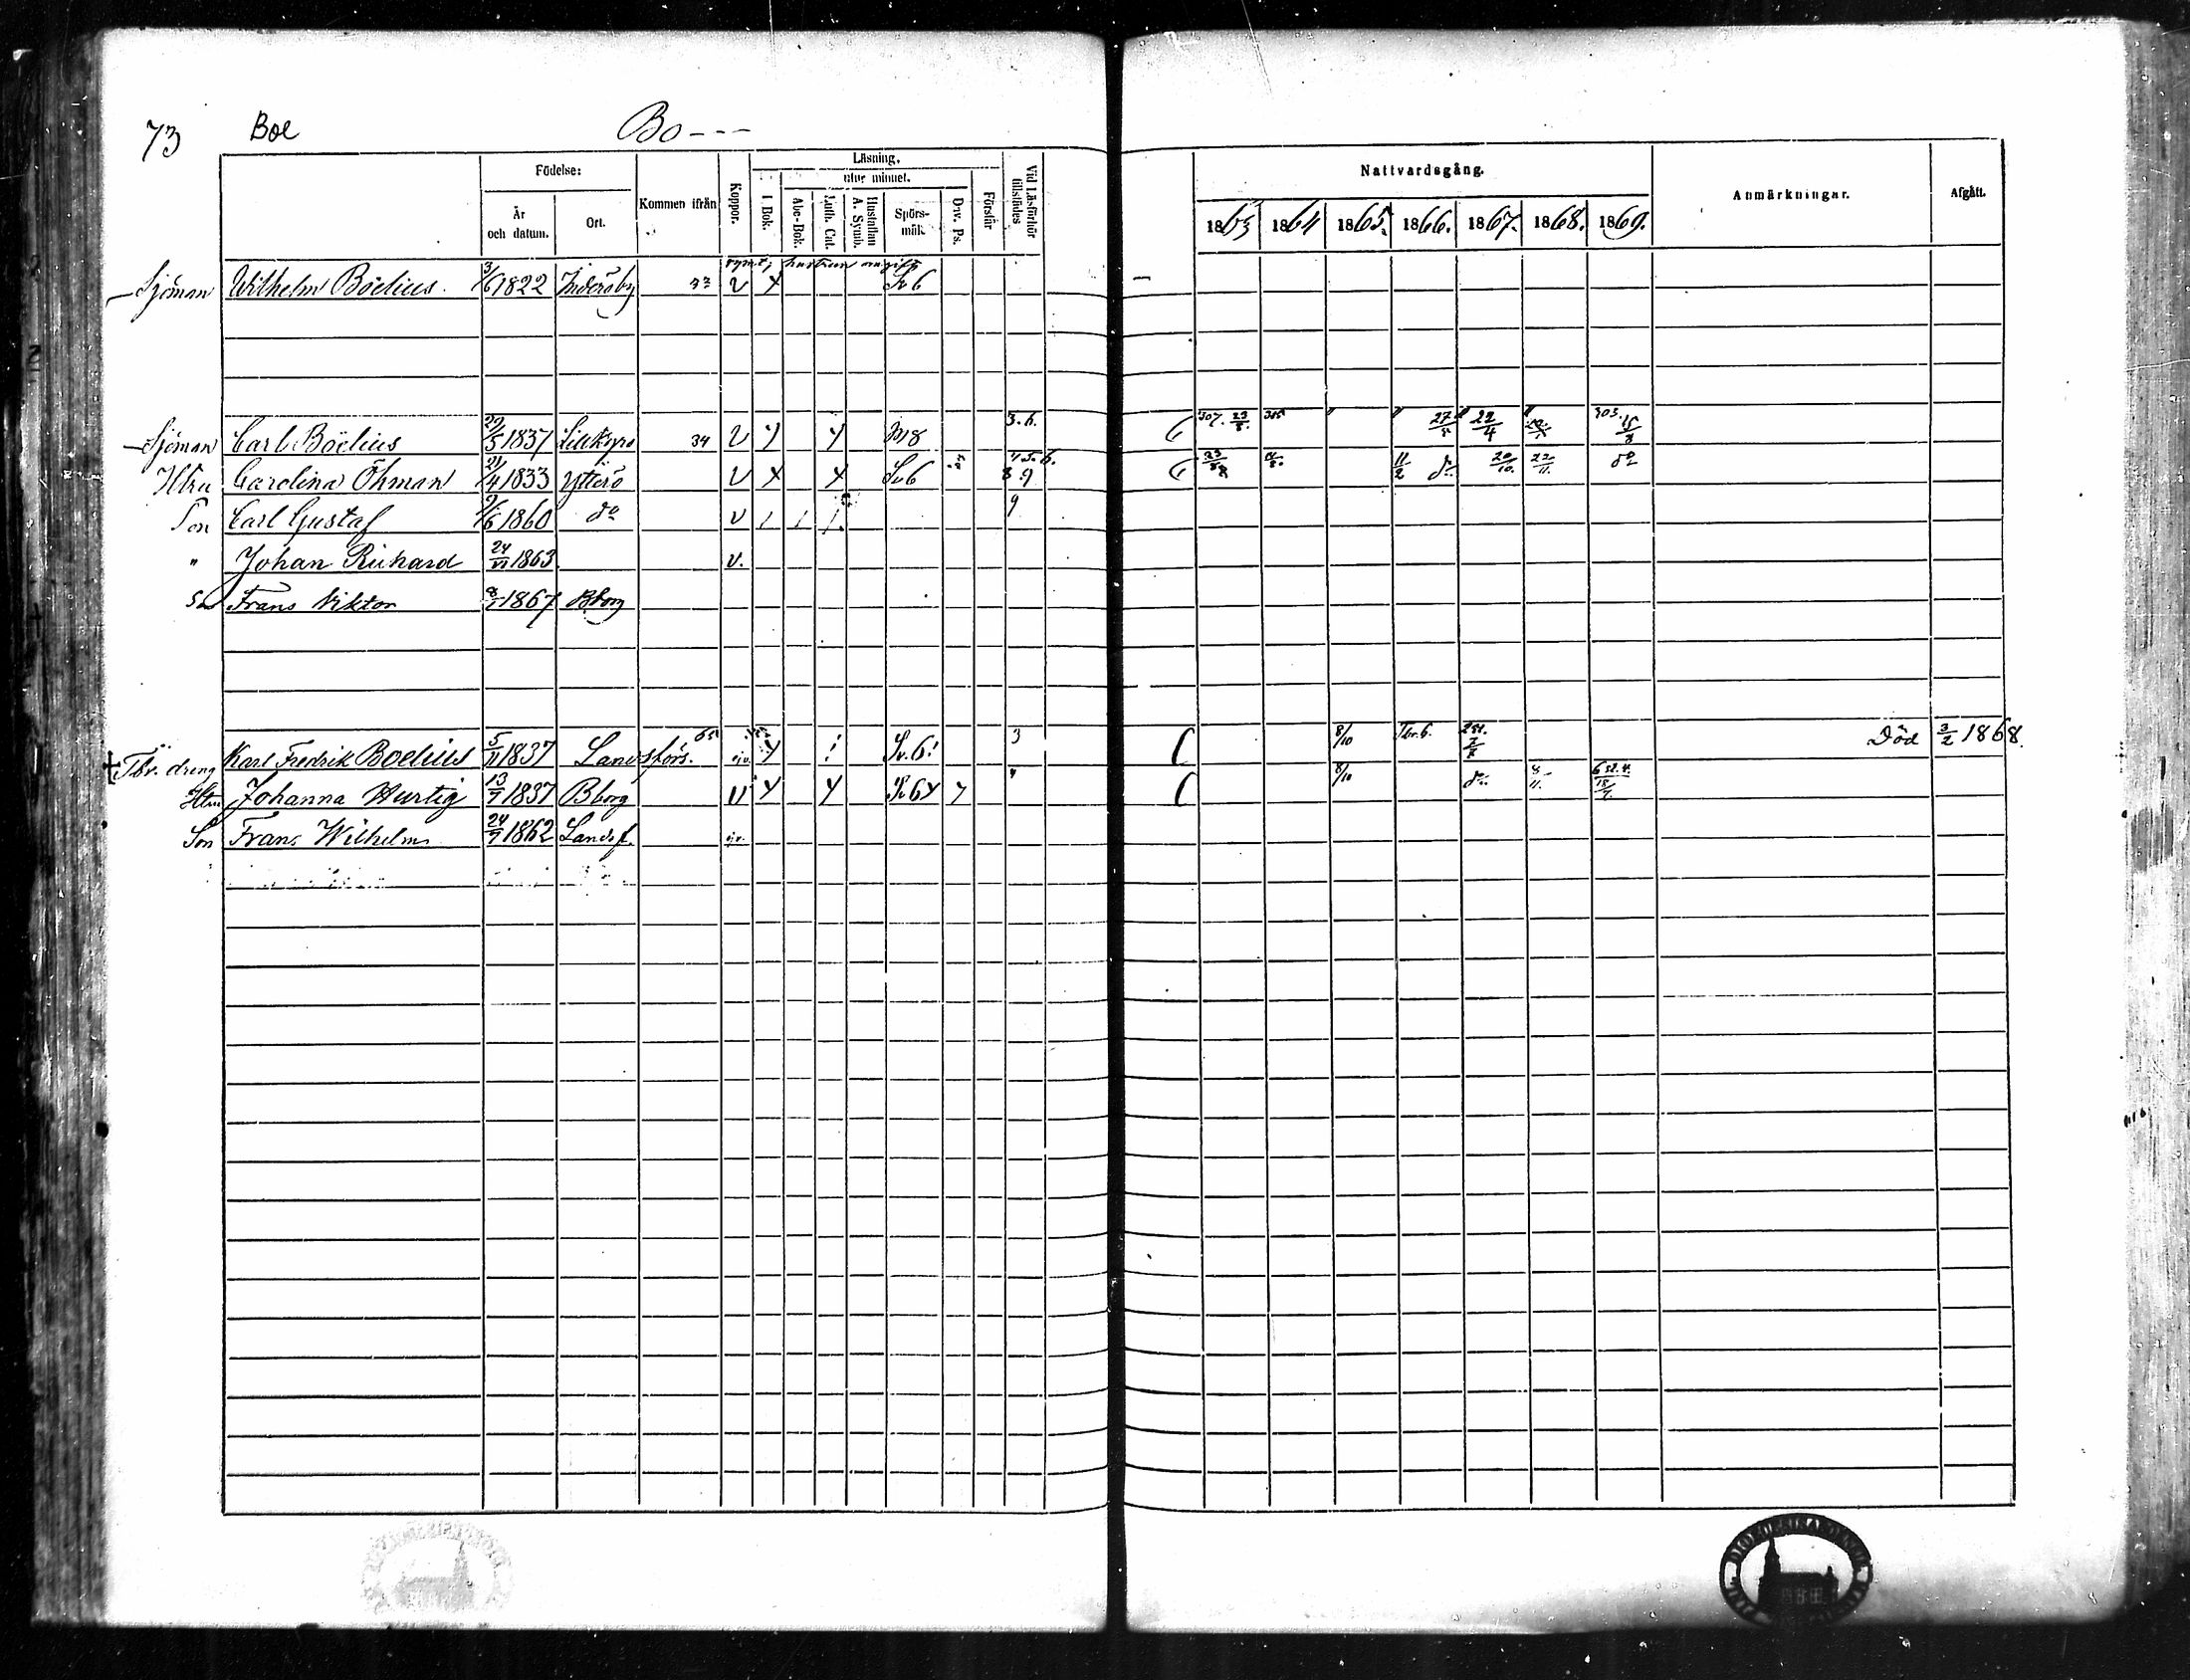 73 Boe Bo---
Födelse: Kommen ifrån Koppor. Läsning. Vid Läsförhör tillstädes Nattvardsgång. Anmärkningar. Afgått.
År och datum. Ort. I. Bok. utur minnet. Förstår
Abc-Bok. Luth. Cat. Hustaflan A. Symb. Spörs-mål. Div. Ps.
1863 1864 1865. 1866. 1867. 1868. 1869.
rymt; hustrun omgift
Sjöman Wilhelm Böelius. 3/6 1822 Inderöby 33 v x Sv6
Sjöman Carl Böelius 29/5 1837 Lillkyro 34 v 3. h. 307. 23/8. 27/5 22/4 303. 15/8
Htru Carolina Öhman 21/4 1833 Ytterö v x x Sv6 4.5.6. 8.9 23/8 11/2 do 20/10. 22/11. do
Son Carl Gustaf 9/6 1860 do v / / / 9
" Johan Rickard 24/VI 1863 v.
Son Frans Viktor 8/1 1867 Bborg
Tbr. dreng Karl Fredrik Boelius 5/11 1837 Landsförs. 65 ejv. Sv.6 3 8/10 Tbr.6. Död 3/2 1868.
Htru Johanna Hurtig 13/7 1837 Bborg v Sv6 " 8/10 do 8/11.
Son Frans Wilhelm 24/7 1862 Landsf. ejv.